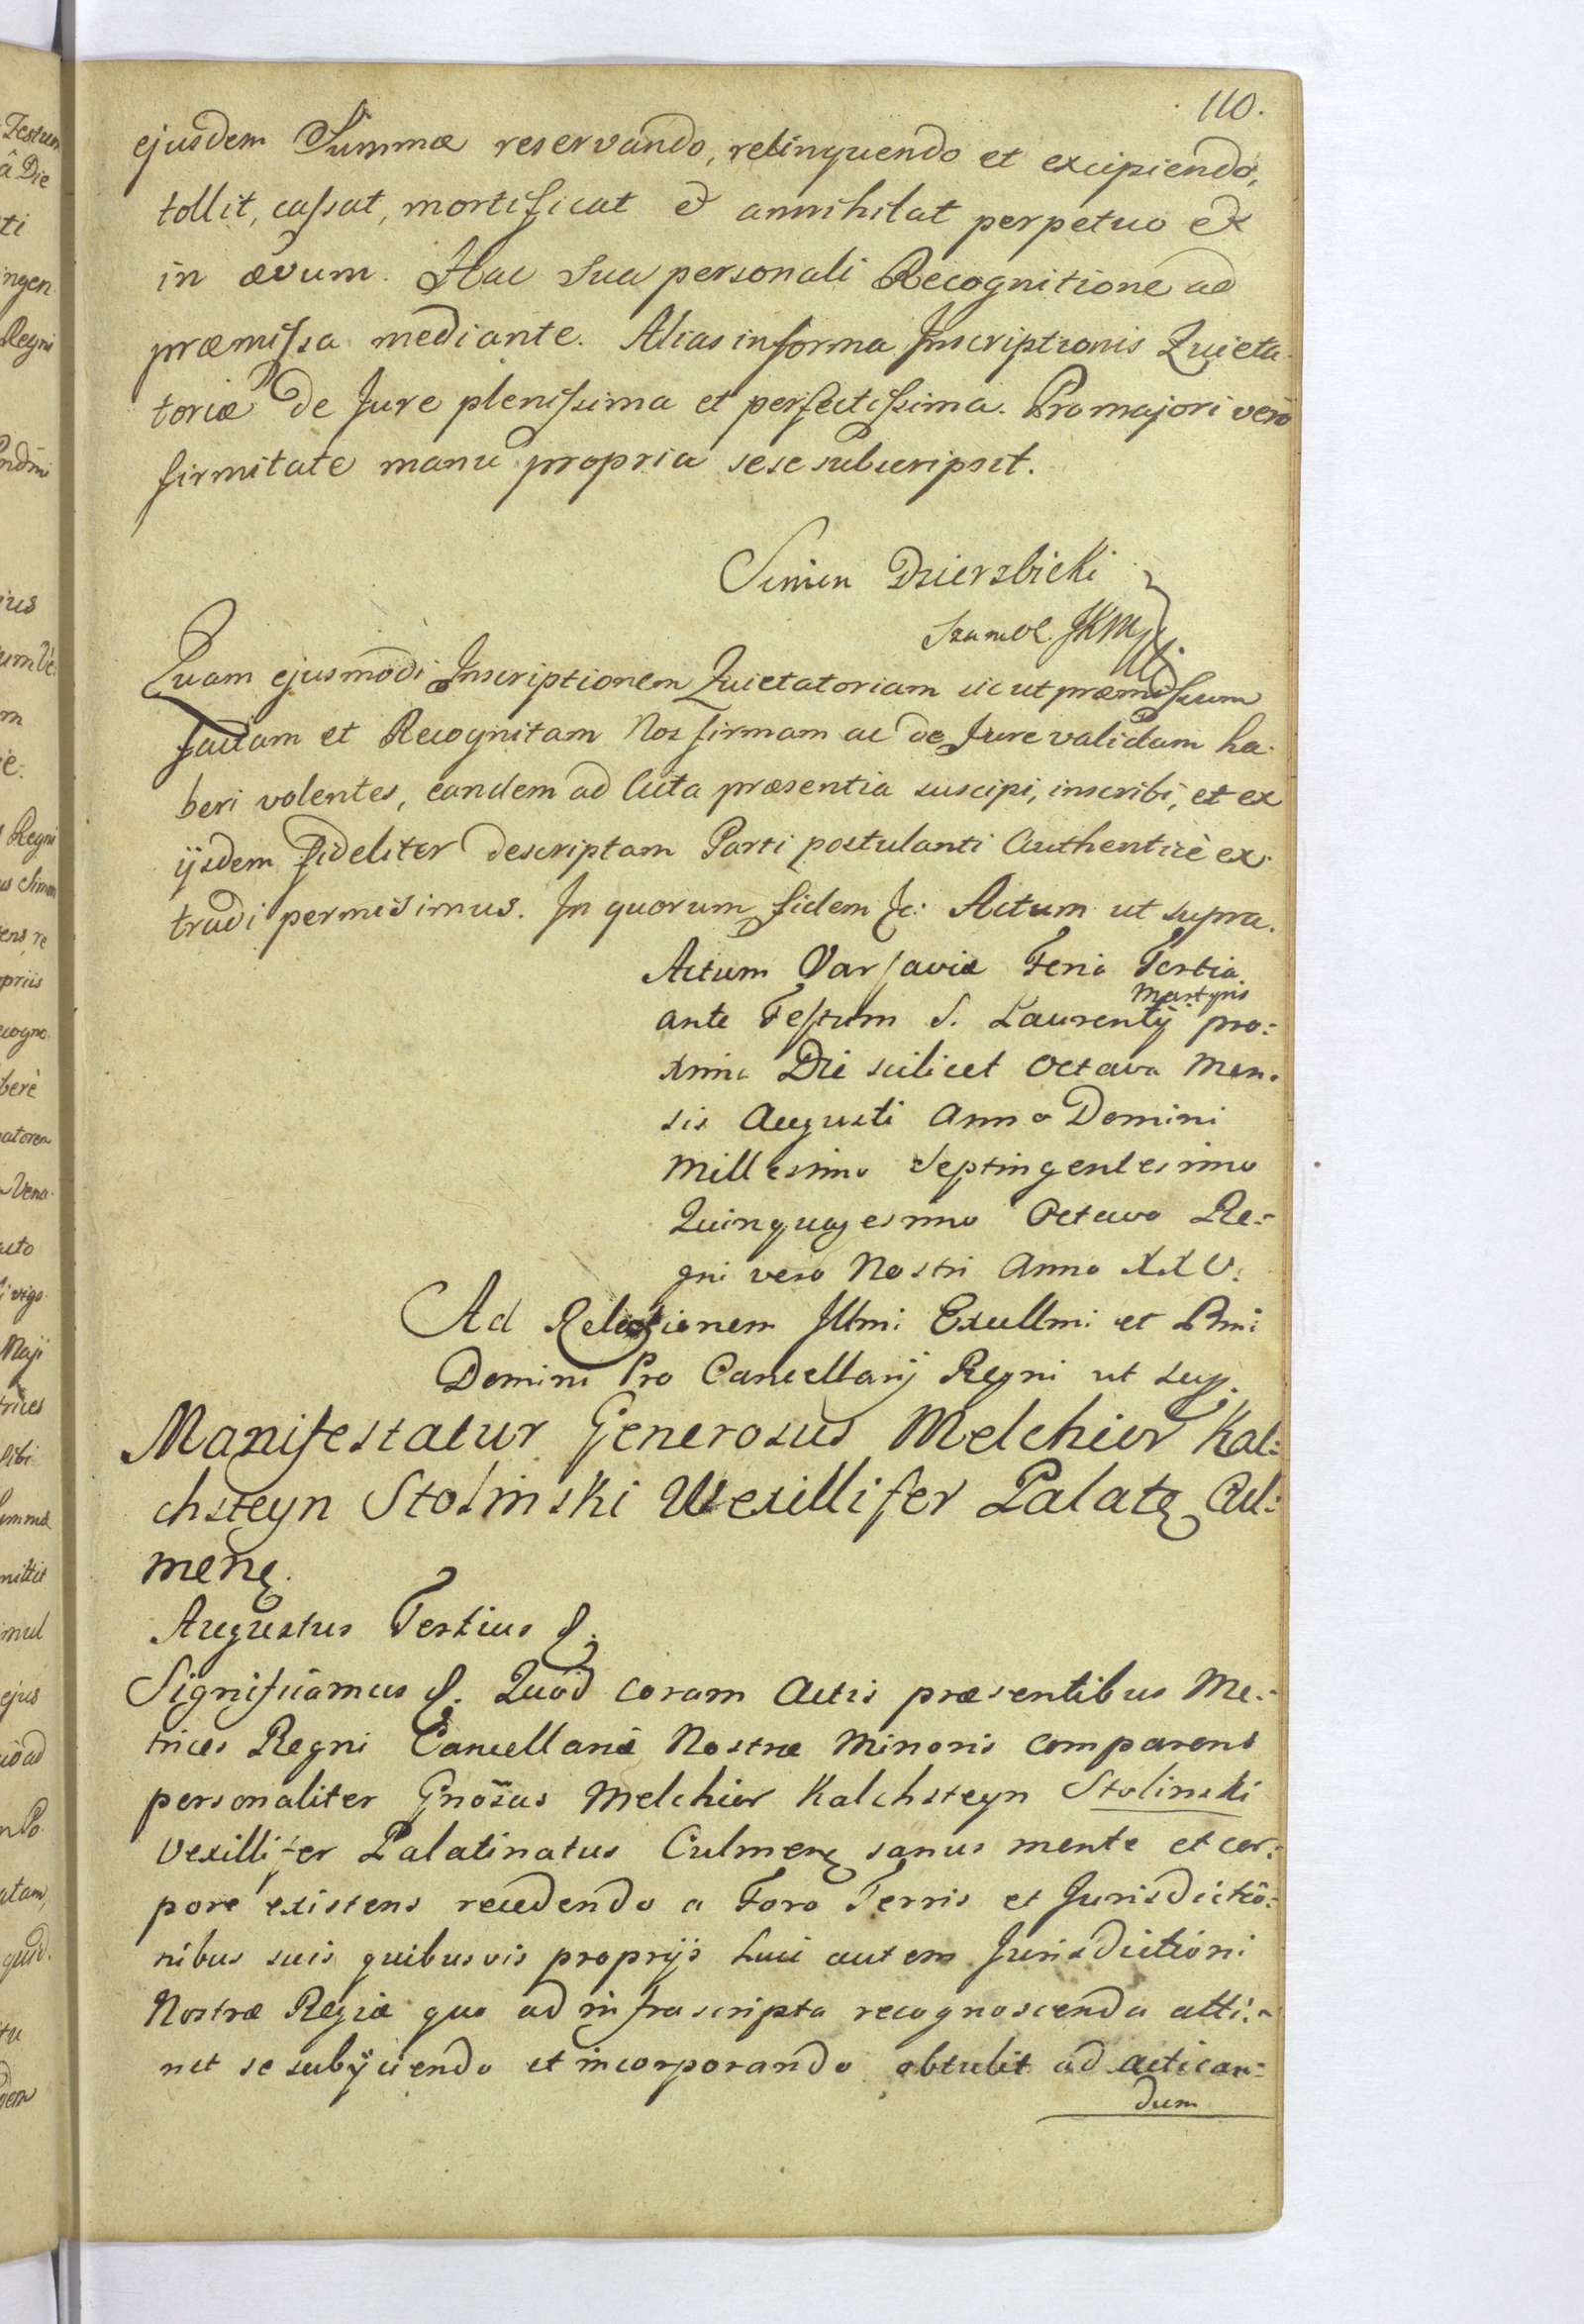 110.
ejusdem Summæ reservando, relinquendo et excipiendo,
tollit, cassat, mortificat & annihilat perpetuo et
in ævum. Hac sua personali Recognitione ad
præmissa mediante. Alias in forma Inscriptionis Quieta-
toriæ de Jure plenissima et perfectissima. Pro majori vero
firmitate manu propria sese subscripsit.
Simon Dzierzbicki
Szambel. JKM
Quam ejusmodi Inscriptionem Quietatoriam sicut præmissum
factam et Recognitam Nos firmam ac de Jure validam ha-
beri volentes, eandem ad Acta præsentia suscipi, inscribi, et ex
ijsdem fideliter descriptam Parti postulanti Authenticè ex-
tradi permisimus. In quorum fidem &c: Actum ut supra.
Actum Varsaviæ Feria Tertia
ante Festum S. Laurentij Martyris pro:
xima Die scilicet octava Men-
sis Augusti Anno Domini
Millesimo Septingentesimo
Quinquagesimo Octavo Re:
gni vero Nostri Anno XXV.
Ad Relationem Illmi: Excellmi et Rmi
Domini Pro Cancellarij Regni ut sup.
Manifestatur Generosus Melchior Kal:
chsteyn Stoliński Vexillifer Palatę Cul:
menę.
Augustus Tertius &.
Significamus &. Quod coram Actis præsentibus Me:
trices Regni Cancellariæ Nostræ Minoris comparens
personaliter Gnōsus Melchior Kalchsteyn Stolinski
Vexillifer Palatinatus Culmenę sanus mente et cor:
pore existens recedendo a Foro Terris et Jurisdictio:
nibus suis quibusvis proprijs huic autem Jurisdictioni
Nostræ Regiæ quo ad infrascripta recognoscenda atti:
net se subijciendo et incorporando obtulit ad actican:
dum